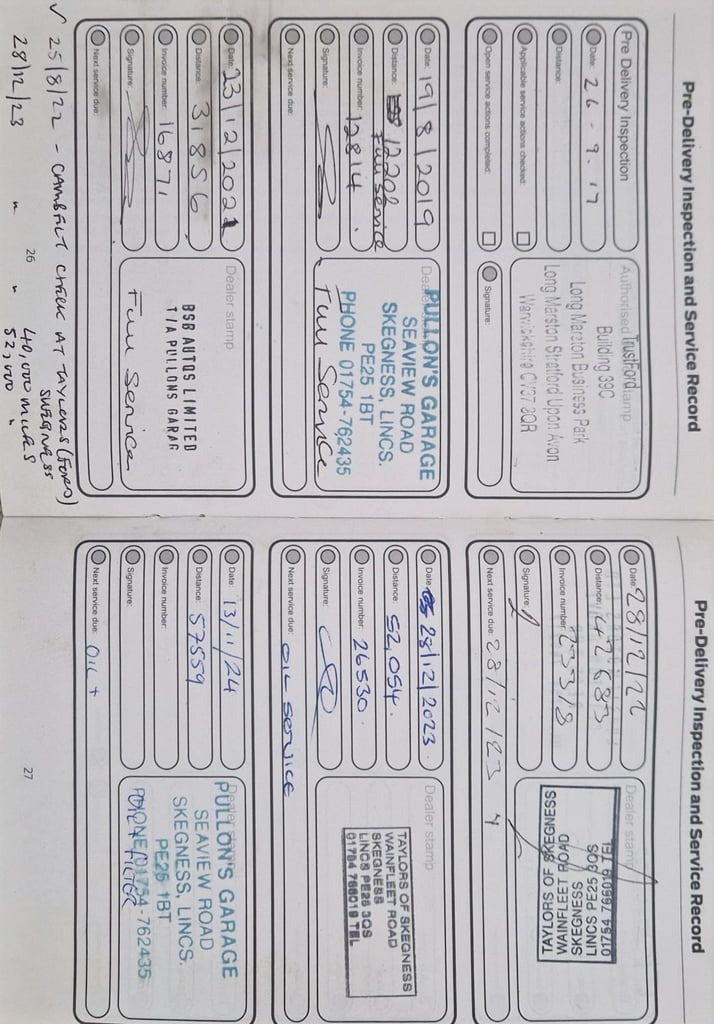 Pre-Delivery Inspection and Service Record
Pre Delivery Inspection
Date: 26-9-17
Distance:
Applicable service actions checked:
Open service actions completed:
Authorised stamp
TrustFord
Building 39C
Long Marston Business Park
Long Marston Stratford Upon Avon
Warwickshire CV37 8QR
Signature:
Date: 19/8/2019
Distance: 12202
Full Service
Invoice number: 12814
Signature:
Next service due:
Dealer stamp
PULLON'S GARAGE
SEAVIEW ROAD
SKEGNESS, LINCS.
PE25 1BT
PHONE 01754-762435
Full Service
Date: 23/12/2021
Distance: 31856
Invoice number: 16871
Signature:
Next service due:
Dealer stamp
BSB AUTOS LIMITED
T/A PULLONS GARAG
Full Service
✓ 25/8/22 - CAMBELT CHECK AT TAYLORS (FORD)
SKEGNESS
40,000 MILES
28/12/23 " " 52,000 "
26
Pre-Delivery Inspection and Service Record
Date: 28/12/22
Distance: 42683
Invoice number: 23318
Signature:
Next service due: 28/12/23
Dealer stamp
TAYLORS OF SKEGNESS
WAINFLEET ROAD
SKEGNESS
LINCS PE25 3QS
01754 766019 TEL
Date: 28/12/2023.
Distance: 52,054.
Invoice number: 26530.
Signature:
Next service due: OIL SERVICE
Dealer stamp
TAYLORS OF SKEGNESS
WAINFLEET ROAD
SKEGNESS
LINCS PE25 3QS
01754 766019 TEL
Date: 13/11/24
Distance: 57559
Invoice number:
Signature:
Next service due: OIL +
Dealer stamp
PULLON'S GARAGE
SEAVIEW ROAD
SKEGNESS, LINCS.
PE25 1BT
PHONE 01754-762435
FILTER
27